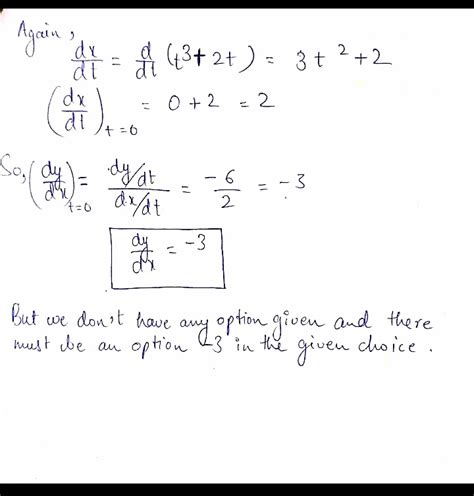 Again,
dx/dt = d/dt (t³ + 2t) = 3t² + 2
(dx/dt)t=0 = 0 + 2 = 2
So, (dy/dx)t=0 = dy/dt / dx/dt = -6/2 = -3
dy/dx = -3
But we don't have any option given and there
must be an option -3 in the given choice.